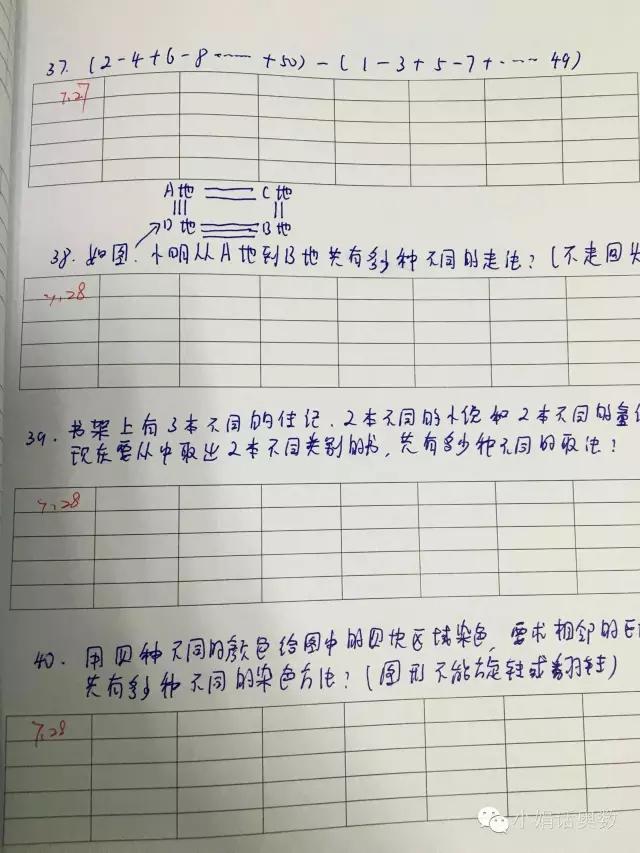 37. (2-4+6-8……+50)-(1-3+5-7+……49)
7.27
A地 C地
D地 B地
38. 如图,小明从A地到B地共有多少种不同的走法?(不走回头
7.28
39. 书架上有3本不同的传记,2本不同的小说和2本不同的
现在要从中取出2本不同类别的书,共有多少种不同的取法?
7.28
40. 用四种不同的颜色给图中的四块区域染色,要求相邻的区
共有多少种不同的染色方法?(图形不能旋转或翻转)
7.28
小娟话奥数